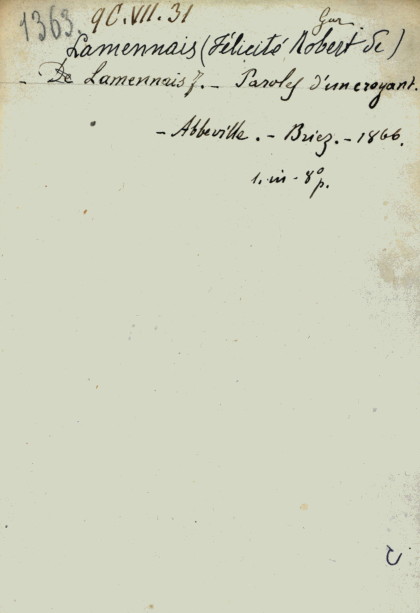 1363. 9C.VII.31
Lamennais (Félicité Robert de)
- De Lamennais f. - Paroles d'un croyant.
- Abbeville. - Briez. - 1866.
1. in-8° p.